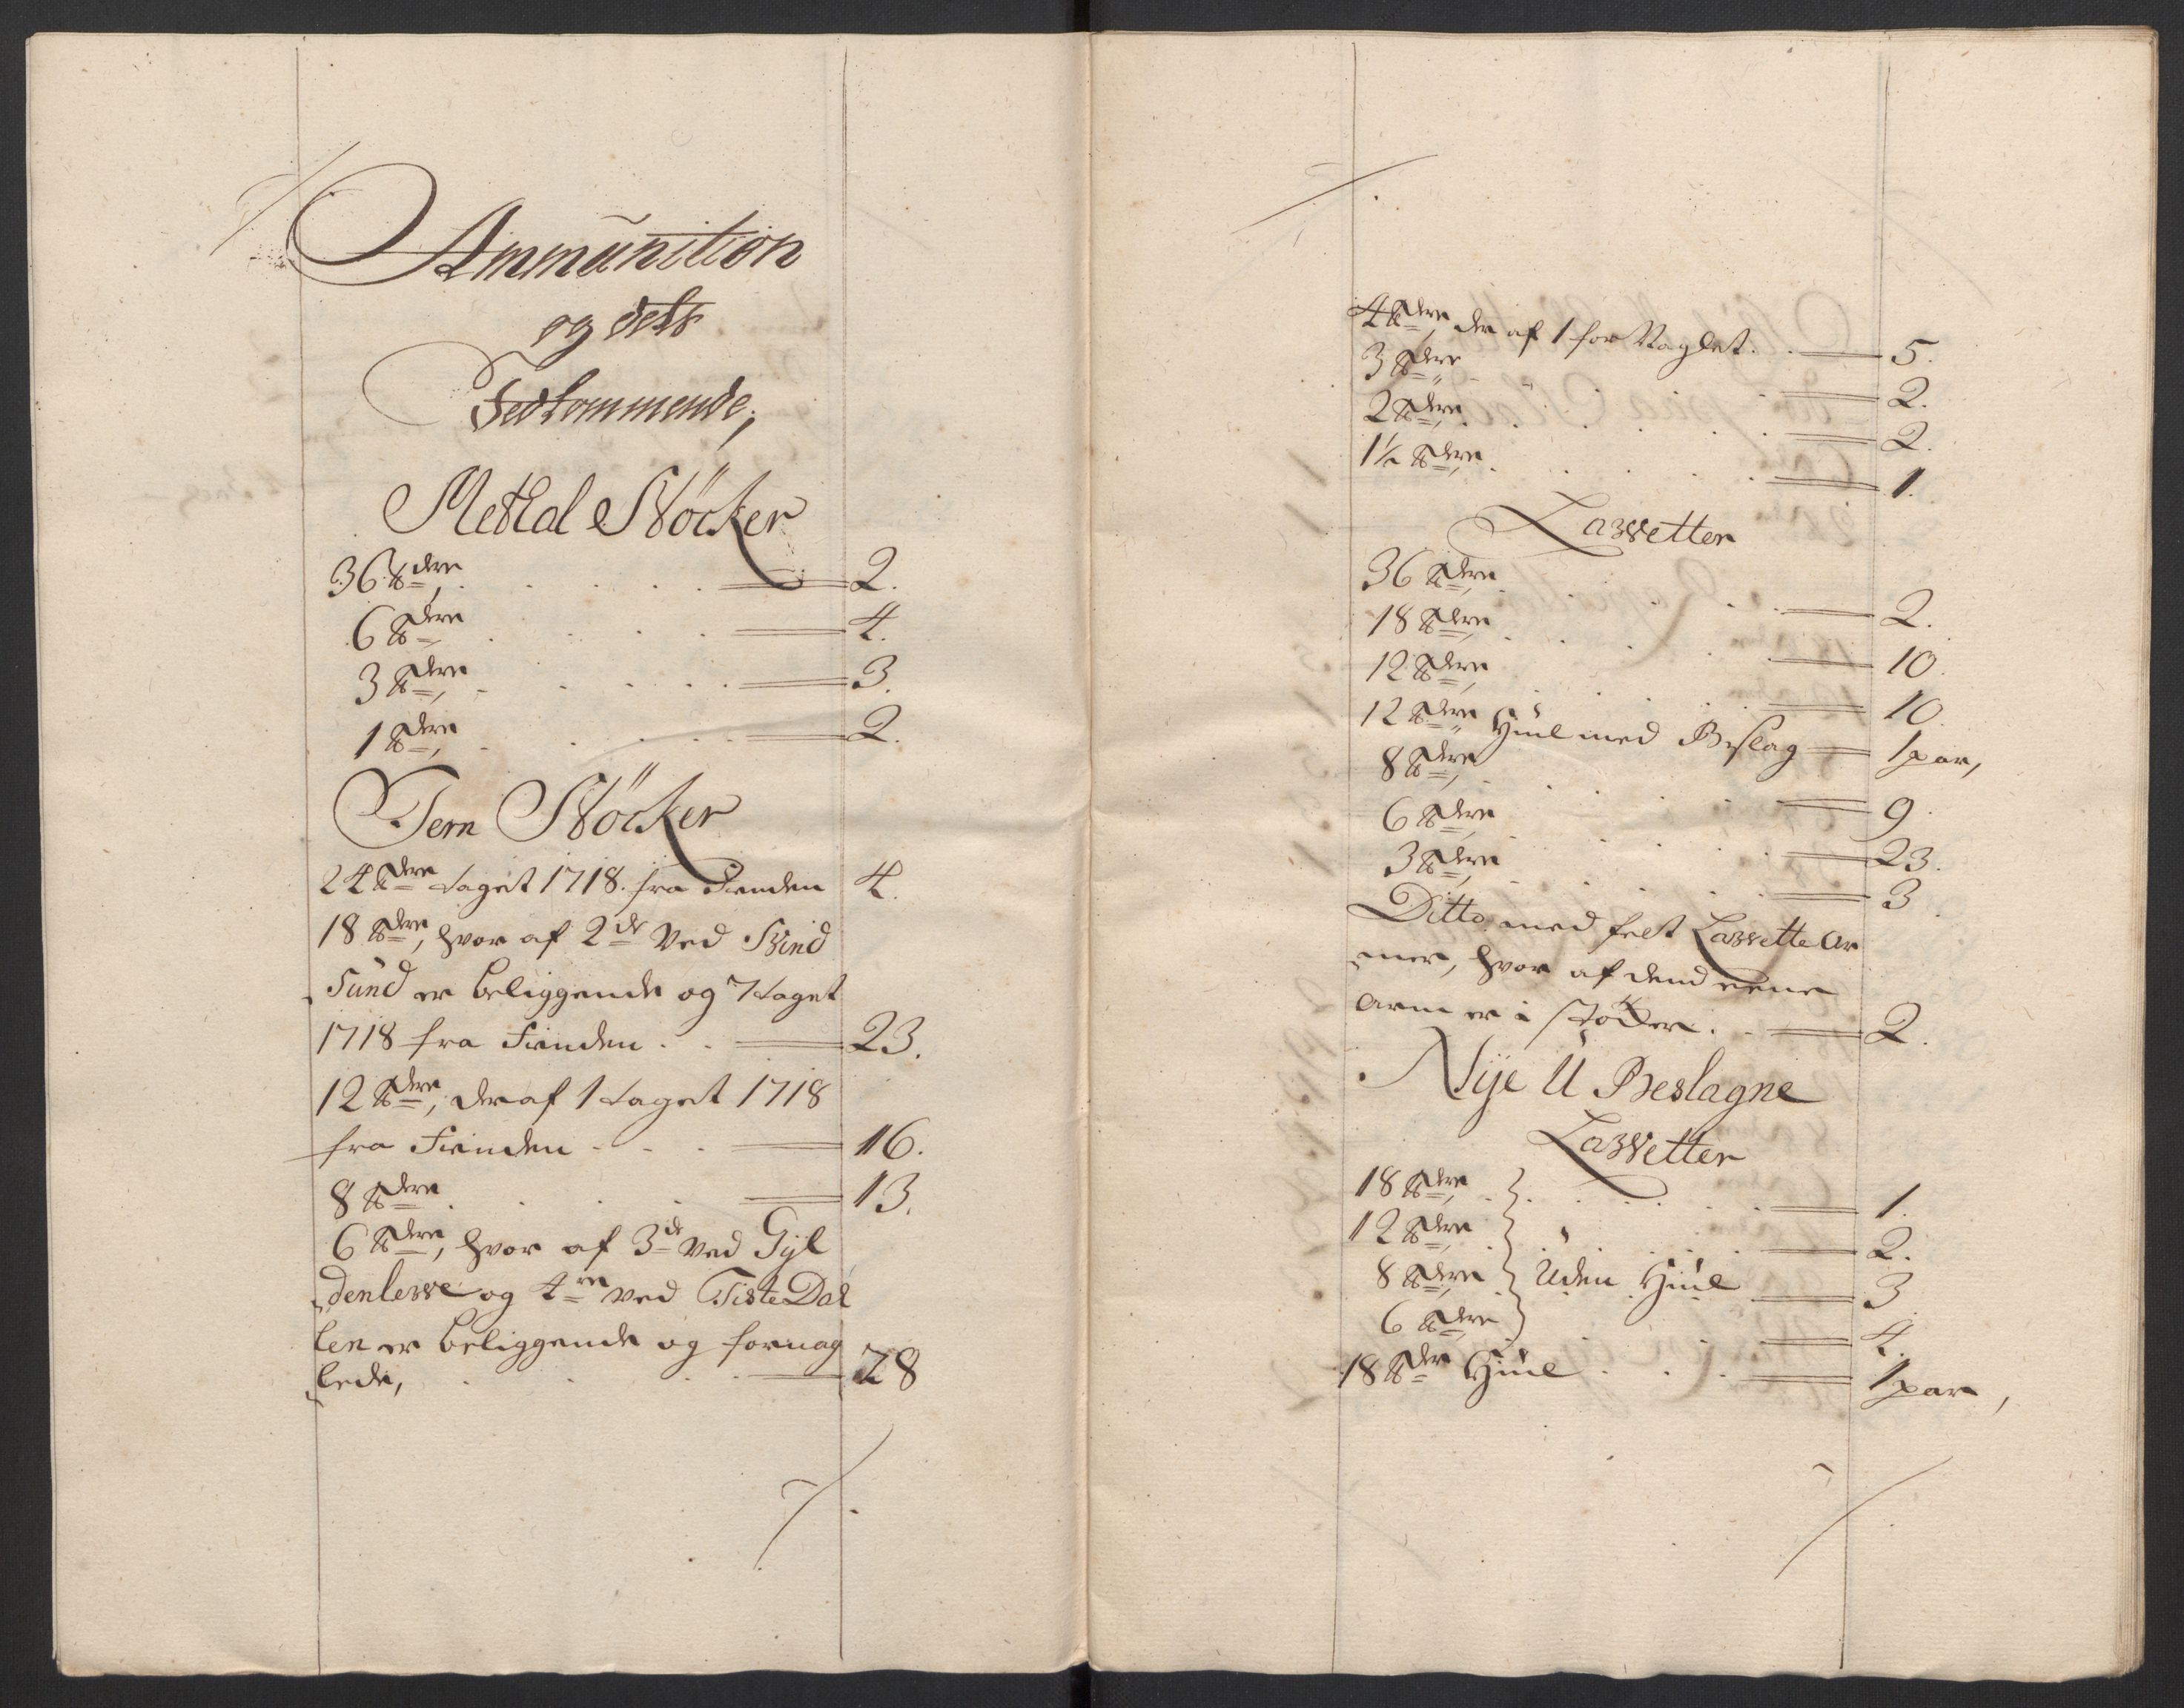 Ammunition
og dets
Vedkommende,
Mettal Støcker
36 ℔dere, . . . . . 2.
6 ℔dere . . . . 4.
3 ℔dere, . . . . . 3.
1 ℔dere, . . . . . 2.
Jern Støcker
24 ℔dere taget 1718. fra Fienden 4.
18 ℔dere, hvor af 2de ved Svind
Sund er beliggende og 7 taget
1718 fra Fienden . . 23.
12 ℔dere, der af 1 taget 1718
fra Fienden . . . 16.
8 ℔dere . . . . 13.
6 ℔dere, hvor af 3de ved Gyl
denlewe og 4re ved Tiste Dal
len er beliggende og fornag
lede, . . . . 28
4 ℔dere, der af 1 fornaglet . . 5.
3 ℔dere . . . . . 2.
2 ℔dere, . . . . . 2.
1½ ℔dere, . . . . . 1.
Lavvetter
36 ℔dere, . . . . . 2.
18 ℔dere, . . . . 10.
12 ℔dere, . . . . 10.
12 ℔dere Hiul med Beslag 1 par,
8 ℔dere, . . . . . 9.
6 ℔dere, . . . . . 23.
3 ℔dere, . . . . . 3.
Ditto med felt Lavvette Ar
mer, hvor af dend eene
arm er i støcker . . 2.
Nye U Beslagne
Lavvetter
18 ℔dere, . } . . . . 1.
12 ℔dere, . } . . . . 2.
8 ℔dere, . } Uden Hiul 3.
6 ℔dere, } . . . . 4.
18 ℔der Hiul . . . 1 par,